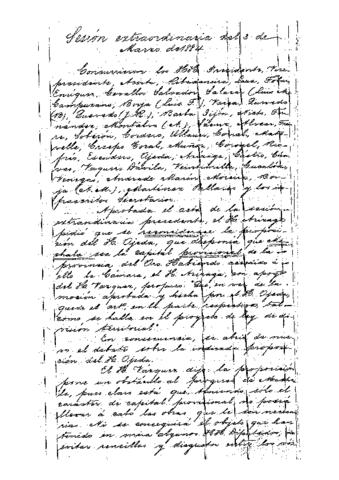 Sesión extraordinaria del 3 de
Marzo de 1894.
Concurrieron los HH. Presidente, Vice-
presidente, Lara,
Enríquez, Cevallos Salvador, Salazar (Luis
Campuzano, Borja (Luis F.), Vargas, Quevedo
Quevedo (J. R.), Baba Gijón, Nieto, Fer-
nández, Montalvo Alvear,
Sotelo, Cordero, Ullauri, Corral, Mato-
velle, Crespo Toral, Muñoz, Coronel, Rio-
frío, Escudero, Ojeda, Arízaga, Castro, Cha-
ves, Vásquez Dávila,
Andrade Marín, Moreira, Bor-
ja (A. M.), Martínez Pallares y los in-
frascritos Secretarios.
Aprobada el acta de la sesión
extraordinaria precedente, el H. Arízaga
pidió que se reconsiderase la proposi-
ción del H. Ojeda, que disponía que Ma-
chala sea la capital provisional de la
provincia del Oro. Habiendo accedido á
ello la Cámara, el H. Arízaga, con apoyo
del H. Vásquez, propuso: "Que, en vez de la
moción aprobada y hecha por el H. Ojeda,
quede el artº, en la parte respectiva, tal
como se halla en el proyecto de ley de di-
visión territorial".
En consecuencia, se abrió de nue-
vo el debate sobre la indicada proposi-
ción del H. Ojeda.
El H. Vásquez dijo: la proposición
pone un obstáculo al progreso de Macha-
la, pues claro está que, teniendo sólo el
carácter de capital provisional, no podrá
llevar á cabo las obras que le son necesa-
rias. No se conseguirá el objeto que han
tenido en mira algunos HH. Diputados, de
evitar rencillas y disgustos entre los